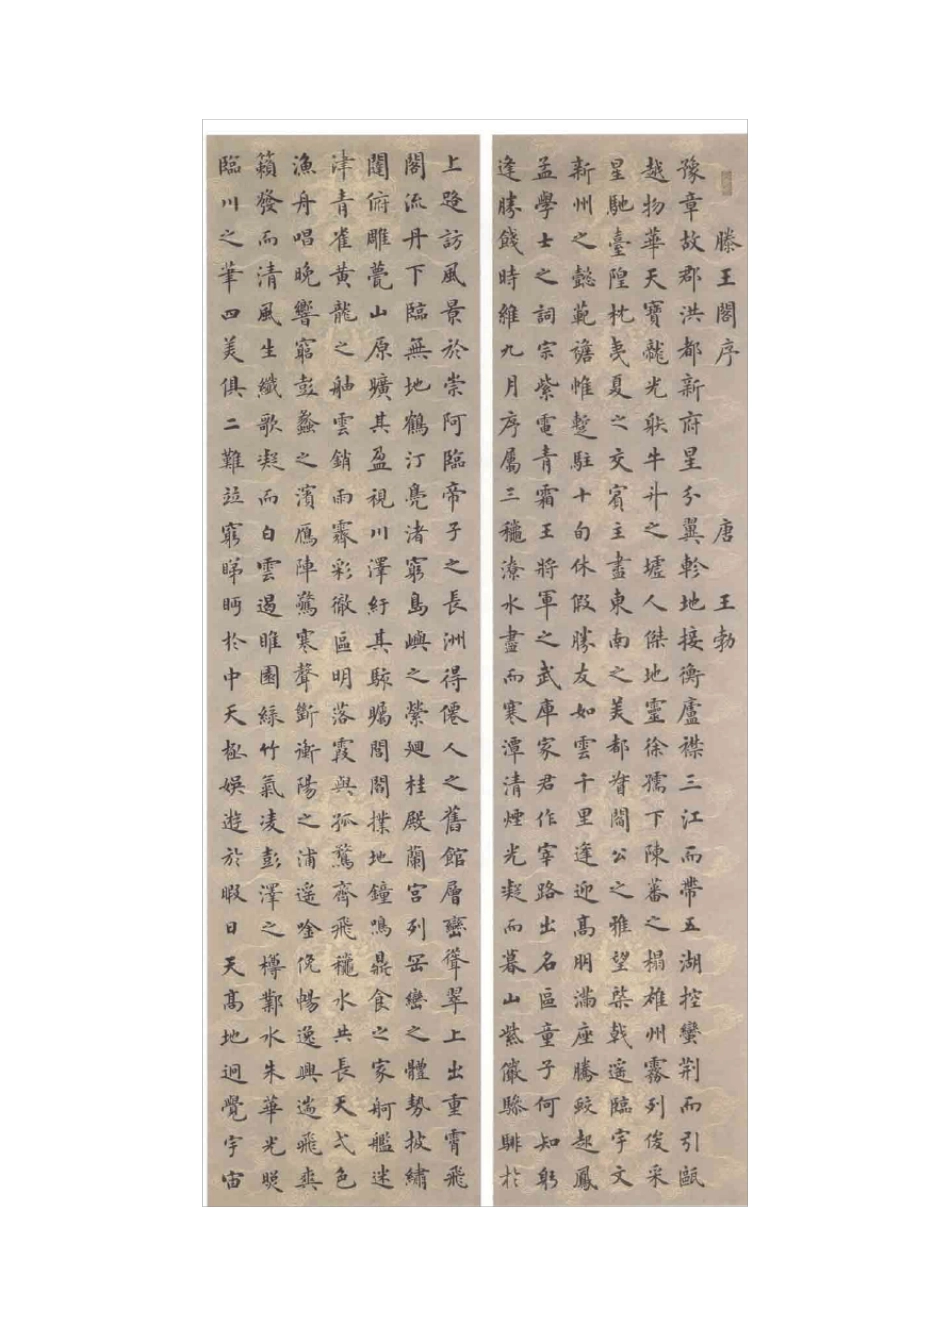 滕王閣序　唐　王勃
豫章故郡洪都新府星分翼軫地接衡廬襟三江而帶五湖控蠻荊而引甌
越物華天寶龍光射牛斗之墟人傑地靈徐孺下陳蕃之榻雄州霧列俊采
星馳臺隍枕夷夏之交賓主盡東南之美都督閻公之雅望棨戟遙臨宇文
新州之懿範襜帷暫駐十旬休假勝友如雲千里逢迎高朋滿座騰蛟起鳳
孟學士之詞宗紫電青霜王將軍之武庫家君作宰路出名區童子何知躬
逢勝餞時維九月序屬三穐潦水盡而寒潭清煙光凝而暮山紫儼驂騑於
上路訪風景於崇阿臨帝子之長洲得僊人之舊館層巒聳翠上出重霄飛
閣流丹下臨無地鶴汀鳧渚窮島嶼之縈廻桂殿蘭宮列岡巒之體勢披繡
闥俯雕甍山原曠其盈視川澤紆其駭矚閭閻撲地鐘鳴鼎食之家舸艦迷
津青雀黃龍之舳雲銷雨霽彩徹區明落霞與孤鶩齊飛穐水共長天弌色
漁舟唱晚響窮彭蠡之濱鴈陣驚寒聲斷衡陽之浦遙唫俛暢逸興遄飛爽
籟發而清風生纖歌凝而白雲遏睢園綠竹氣凌彭澤之樽鄴水朱華光照
臨川之筆四美俱二難竝窮睇眄於中天極娛遊於暇日天高地迥覺宇宙